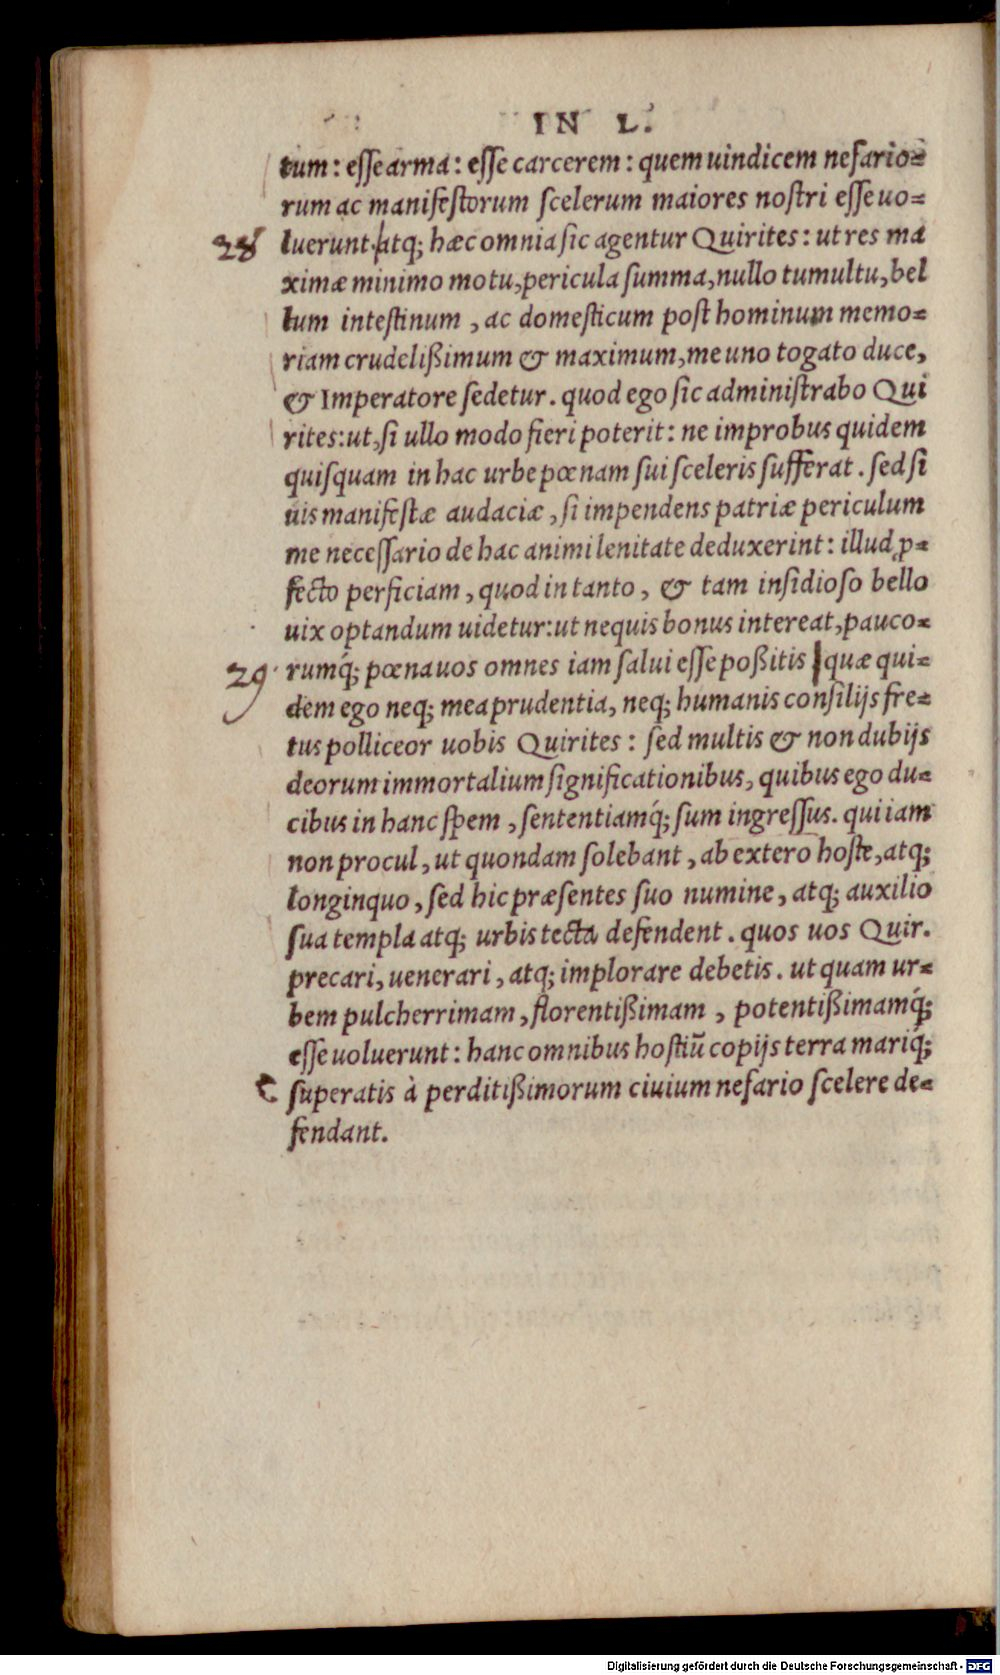 IN L.
tum: eſſe arma: eſſe carcerem: quem uindicem nefario=
rum ac manifeſtorum ſcelerum maiores noſtri eſſe uo=
28 luerunt. atq; hæc omnia ſic agentur Quirites: ut res ma
ximæ minimo motu, pericula ſumma, nullo tumultu, bel
lum inteſtinum, ac domeſticum poſt hominum memo=
riam crudelißimum & maximum, me uno togato duce,
& Imperatore ſedetur. quod ego ſic adminiſtrabo Qui
rites: ut, ſi ullo modo fieri poterit: ne improbus quidem
quiſquam in hac urbe pœnam ſui ſceleris ſufferat. ſed ſi
uis manifeſtæ audaciæ, ſi impendens patriæ periculum
me neceſſario de hac animi lenitate deduxerint: illud ꝓ=
fecto perficiam, quod in tanto, & tam inſidioſo bello
uix optandum uidetur: ut nequis bonus intereat, pauco=
29 rumq́; pœna uos omnes iam ſalui eſſe poßitis quæ qui=
dem ego neq; mea prudentia, neq; humanis conſilijs fre=
tus polliceor uobis Quirites: ſed multis & non dubijs
deorum immortalium ſignificationibus, quibus ego du=
cibus in hanc ſpem, ſententiamq́; ſum ingreſſus. qui iam
non procul, ut quondam ſolebant, ab extero hoſte, atq;
longinquo, ſed hic præſentes ſuo numine, atq; auxilio
ſua templa atq; urbis tecta defendent. quos uos Quir.
precari, uenerari, atq; implorare debetis. ut quam ur=
bem pulcherrimam, florentißimam, potentißimamq́;
eſſe uoluerunt: hanc omnibus hoſtiū copijs terra mariq́;
ſuperatis à perditißimorum ciuium nefario ſcelere de=
fendant.
Digitalisierung gefördert durch die Deutsche Forschungsgemeinschaft - DFG